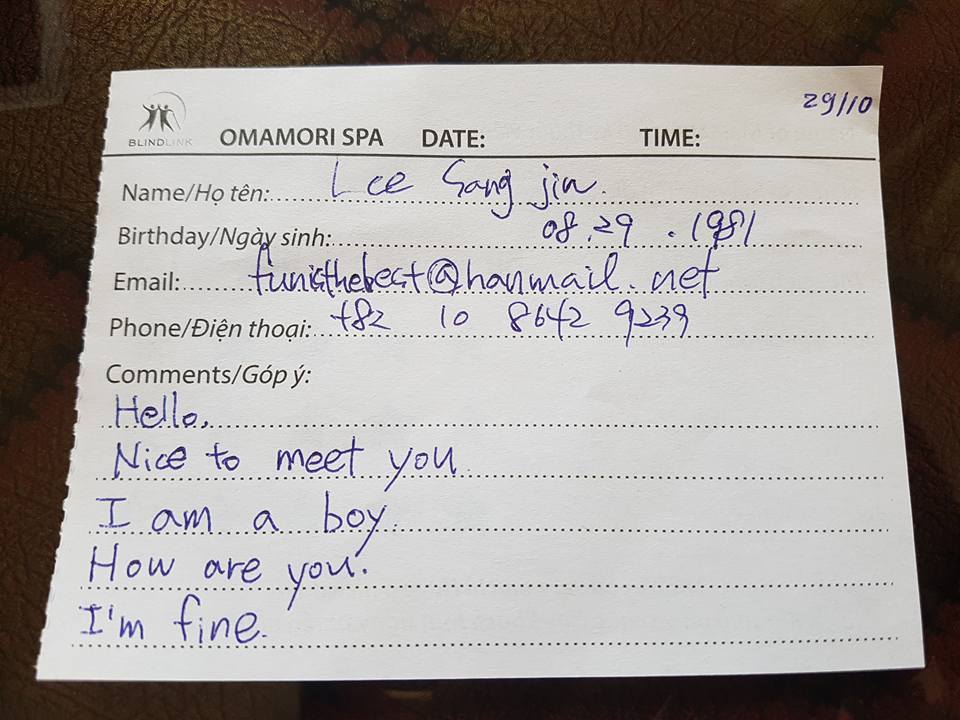 29/10
BLINDLINK OMAMORI SPA DATE: TIME:
Name/Họ tên: Lee Sang jin.
Birthday/Ngày sinh: 08.29.1981
Email: funisthebest@hanmail.net
Phone/Điện thoại: +82 10 8642 9239
Comments/Góp ý:
Hello.
Nice to meet you
I am a boy.
How are you.
I'm fine.